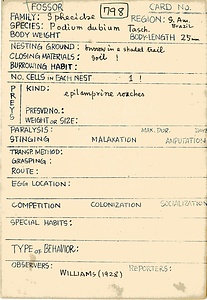 FOSSOR 798 CARD NO.
FAMILY: Sphecidae REGION: S. Am. Brazil
SPECIES: Podium dubium Tasch.
BODY WEIGHT BODY-LENGTH 25mm
NESTING GROUND: burrow in a shaded trail
CLOSING MATERIALS: soil !
BURROWING HABIT:
NO. CELLS IN EACH NEST 1 !
PREYS KIND: epilamprine roaches
PRESVD NO.:
WEIGHT OR SIZE:
PARALYSIS: MAX. DUR. DAYS
STINGING MALAXATION AMPUTATION
TRANSP. METHOD:
GRASPING:
ROUTE:
EGG LOCATION:
COMPETITION COLONIZATION SOCIALIZATION
SPECIAL HABITS:
TYPE OF BEHAVIOR:
OBSERVERS: REPORTERS:
WILLIAMS (1928)